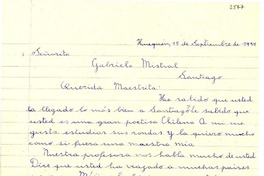 2577
Huequén, 15 de Septiembre de 1954
Señorita
Gabriela Mistral
Santiago
Querida Maestrita:
He sabido que usted
ha llegado lo más bien a Santiago he sabido que
usted es una gran poetisa Chilena A mi me
gusta estudiar sus rondas y la quiero mucho
como si fuera una maestra mia
Nuestra profesora nos habla mucho de usted
Dice que usted ha viajado a muchos paises